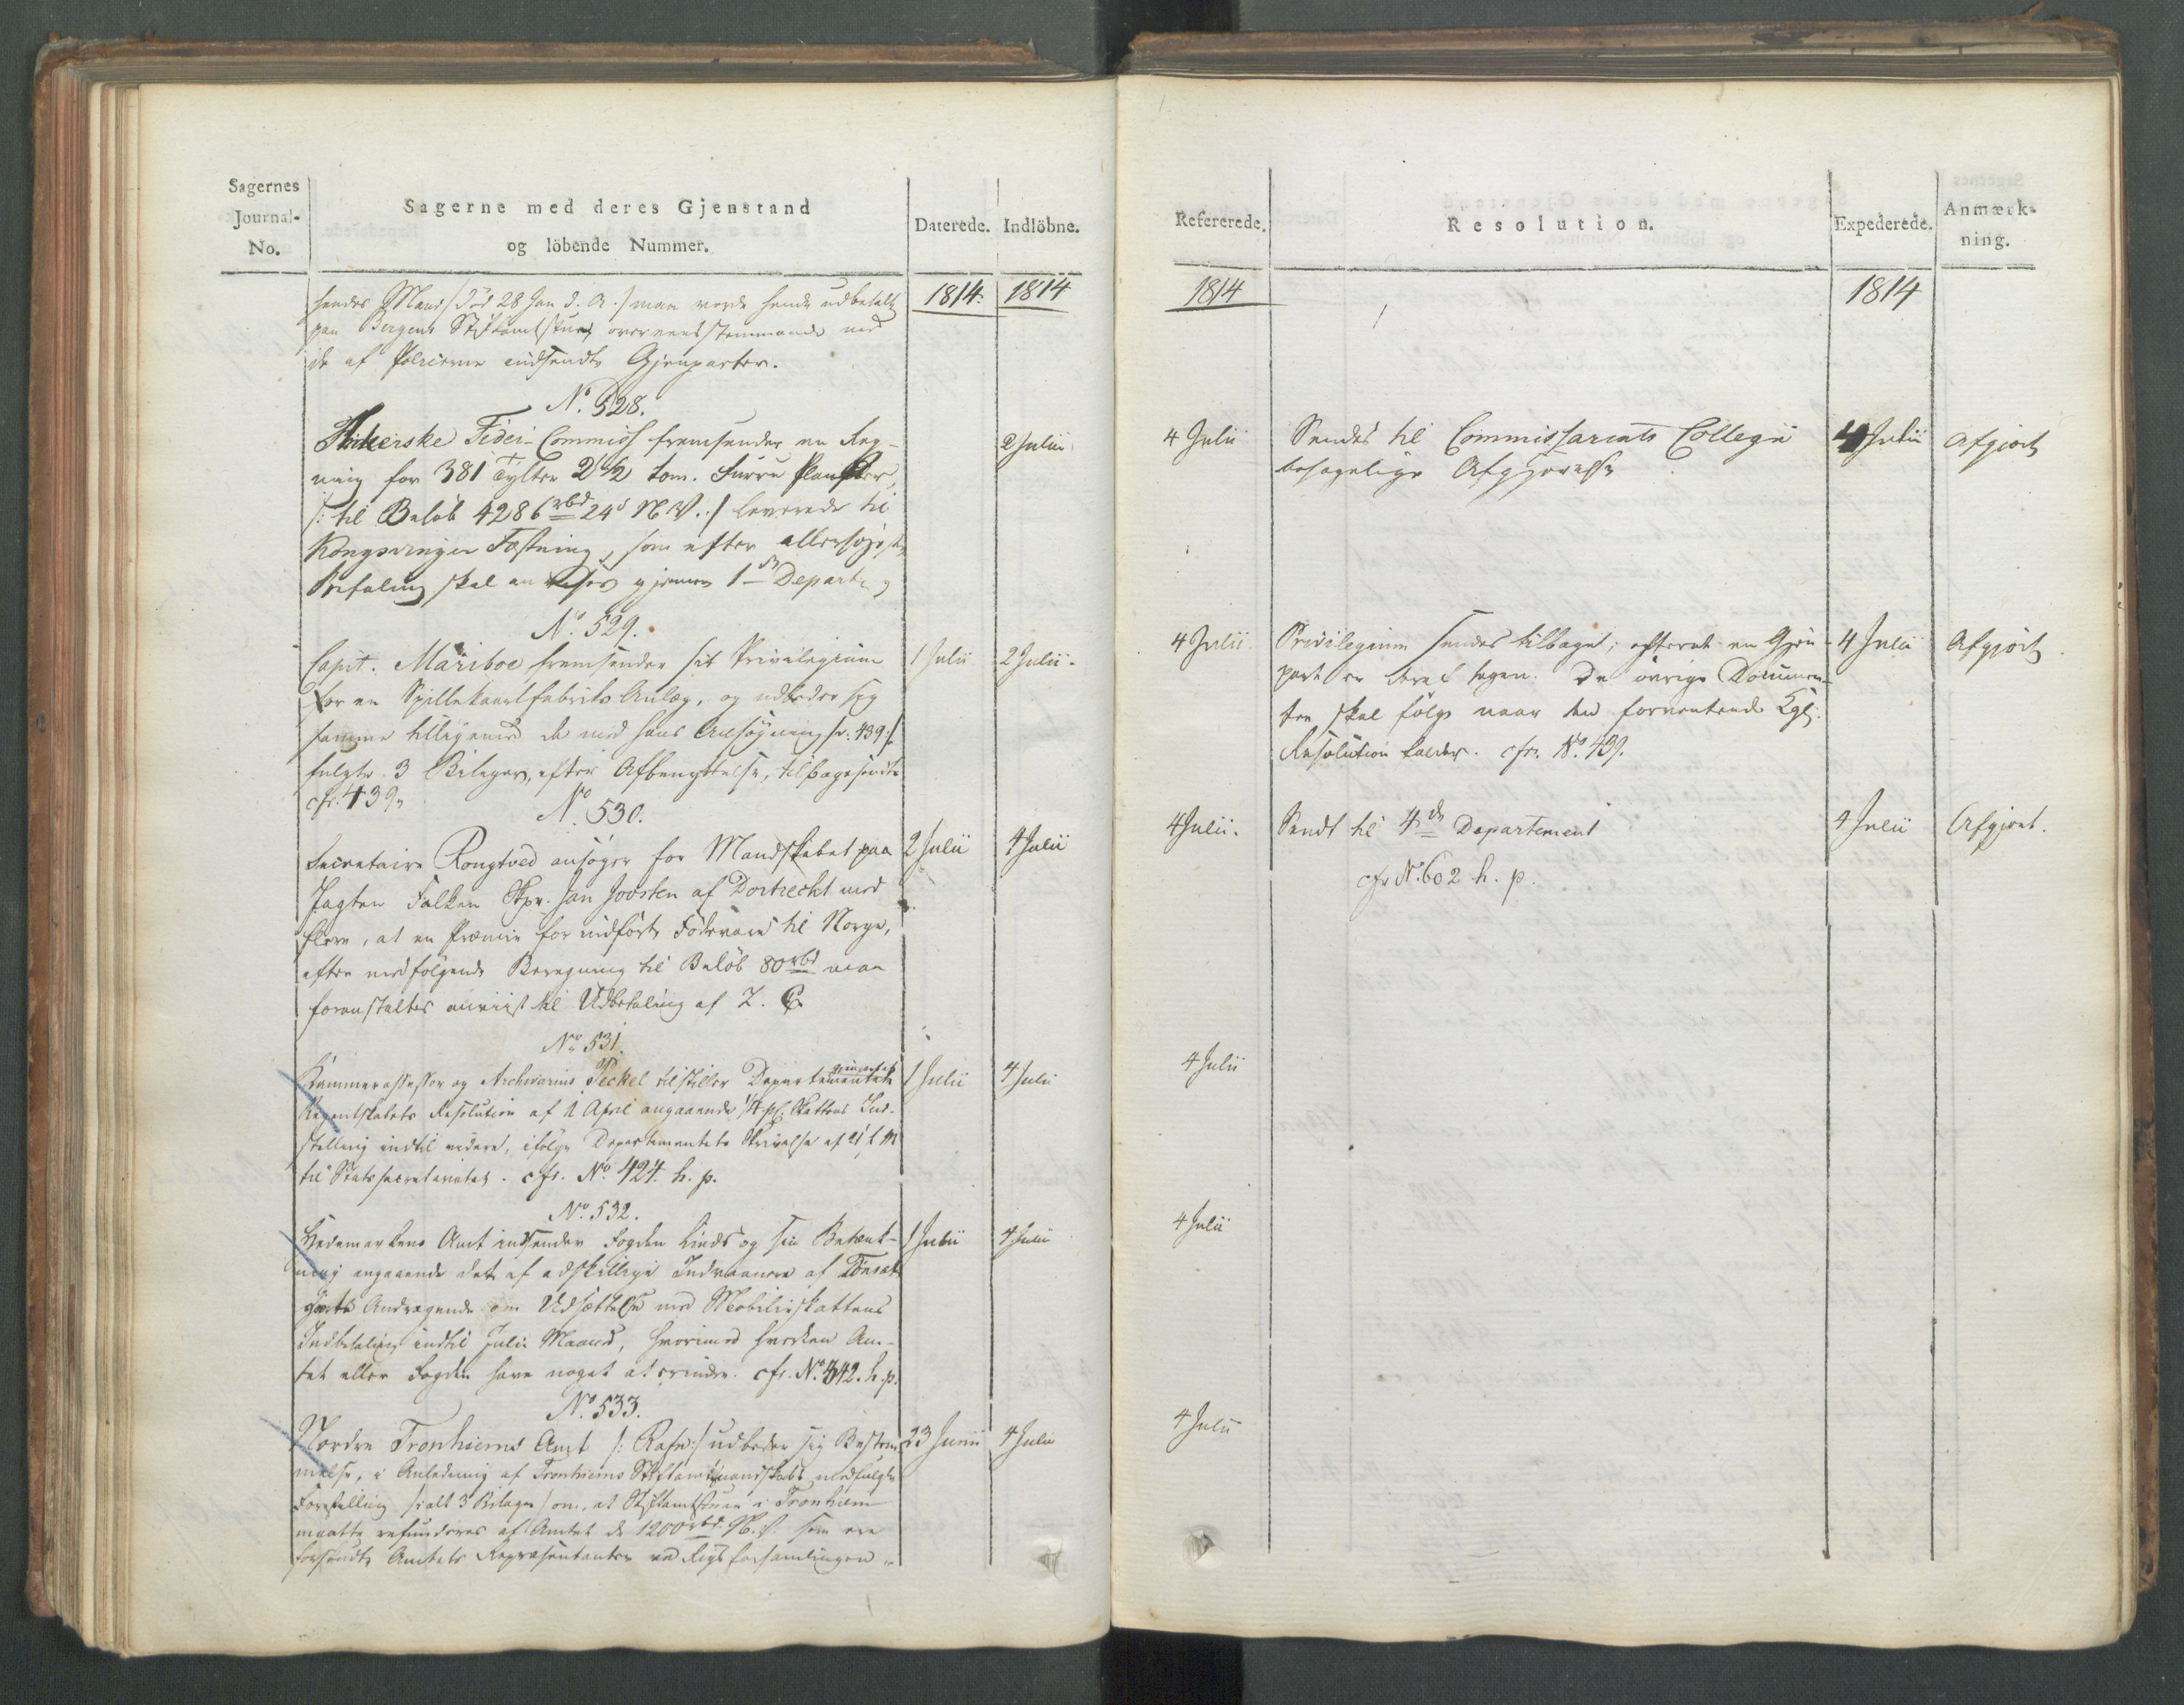 Sagernes
Journal-
No.
Sagerne med deres Gjenstand
og löbende Nummer.
Daterede.
Indlöbne.
1814.
1814
hendes Mand /: død 28 Jan d. A. :/ maa vorde hende udbetalt
paa Bergens Stiftamtstue, overeensstemmende med
de af Policerne indsendte Gjenparter.
No. 528.
Ankerske Fidei-Commiss fremsender en Reg-
ning for 381 Tylter 2 1/2 tom. Furru Planker,
/: til Beløb 4286 rbd 24 s N.V. :/ leverede til
Kongsvinger Fæstning, som efter allerhøjeste
Befaling skal anvises gjennem 1ste Depart.
2 Julii
No. 529.
Capt. Mariboe fremsender sit Privilegium
for en Spillekaartfabriks Anlæg, og udbeder sig
samme tilligemed de med hans Ansøgning sr. 439 :/
fulgte 3 Bilager, efter Afbenyttelse, tilbagesendte
cfr. 439.
1 Julii
2 Julii.
No. 530.
Secretaire Rongtved ansøger for Mandskabet paa
Jagten Falken Skpr. Jan Joosten af Dortrecht med
flere, at en Præmie for indført Fødevare til Norge,
efter medfølgende Beregning til Beløb 80 rbd maa
foranstaltes anviist til Udbetaling af Z. C.
2 Julii
4 Julii
No. 531.
Kammerassessor og Archivarius Peckel tilstiller Departementet
Regentskabets Resolution af 1 April angaaende 1/4 pC. Skattens Ind-
stilling indtil videre, ifølge Departementets Skrivelse af 21 f. M.
til Statssecretariatet. cfr. No. 424. h. p.
1 Julii
4 Julii
No. 532.
Hedemarkens Amt indsender Fogden Linds og sin Betænk-
ning angaaende det af adskillige Indvaanere af Tönset
gjorte Andragende om Udsættelse med Mobilieskattens
Indbetaling indtil Julii Maaned, hvorimod hverken Am-
tet eller Fogden have noget at erindre. cfr. No. 342. h. p.
1 Julii
4 Julii
No. 533.
Nordre Tronhiems Amt /: Rafn :/ udbeder sig Bestem-
melse, i Anledning af Tronhiems Stiftamtmandskabs medfulgte
Forestilling /: i alt 3 Bilager :/ om, at Stiftamtstuen i Tronhiem
maatte refunderes af Amtet de 1200 rbd. N.V. som ere
forskudte Amtets Repræsentanter ved Rigsforsamlingen
23 Junii
4 Julii
Refererede.
Resolution.
Expederede.
Anmærk-
ning.
1814
1814
4 Julii
Sendes til Commissariats Collegii
behagelige Afgjørelse
4 Julii
Afgjort
4 Julii.
Privilegium sendes tilbage; efterat en Gjen-
part er deraf tagen. De øvrige Documen-
ter skal følge naar den forventende Kgl.
Resolution falder. cfr. No. 439.
4 Julii
Afgjort
4 Julii.
Sendt til 4de Departement
cfr No. 602 h. p.
4 Julii
Afgjort.
4 Julii
4 Julii
4 Julii